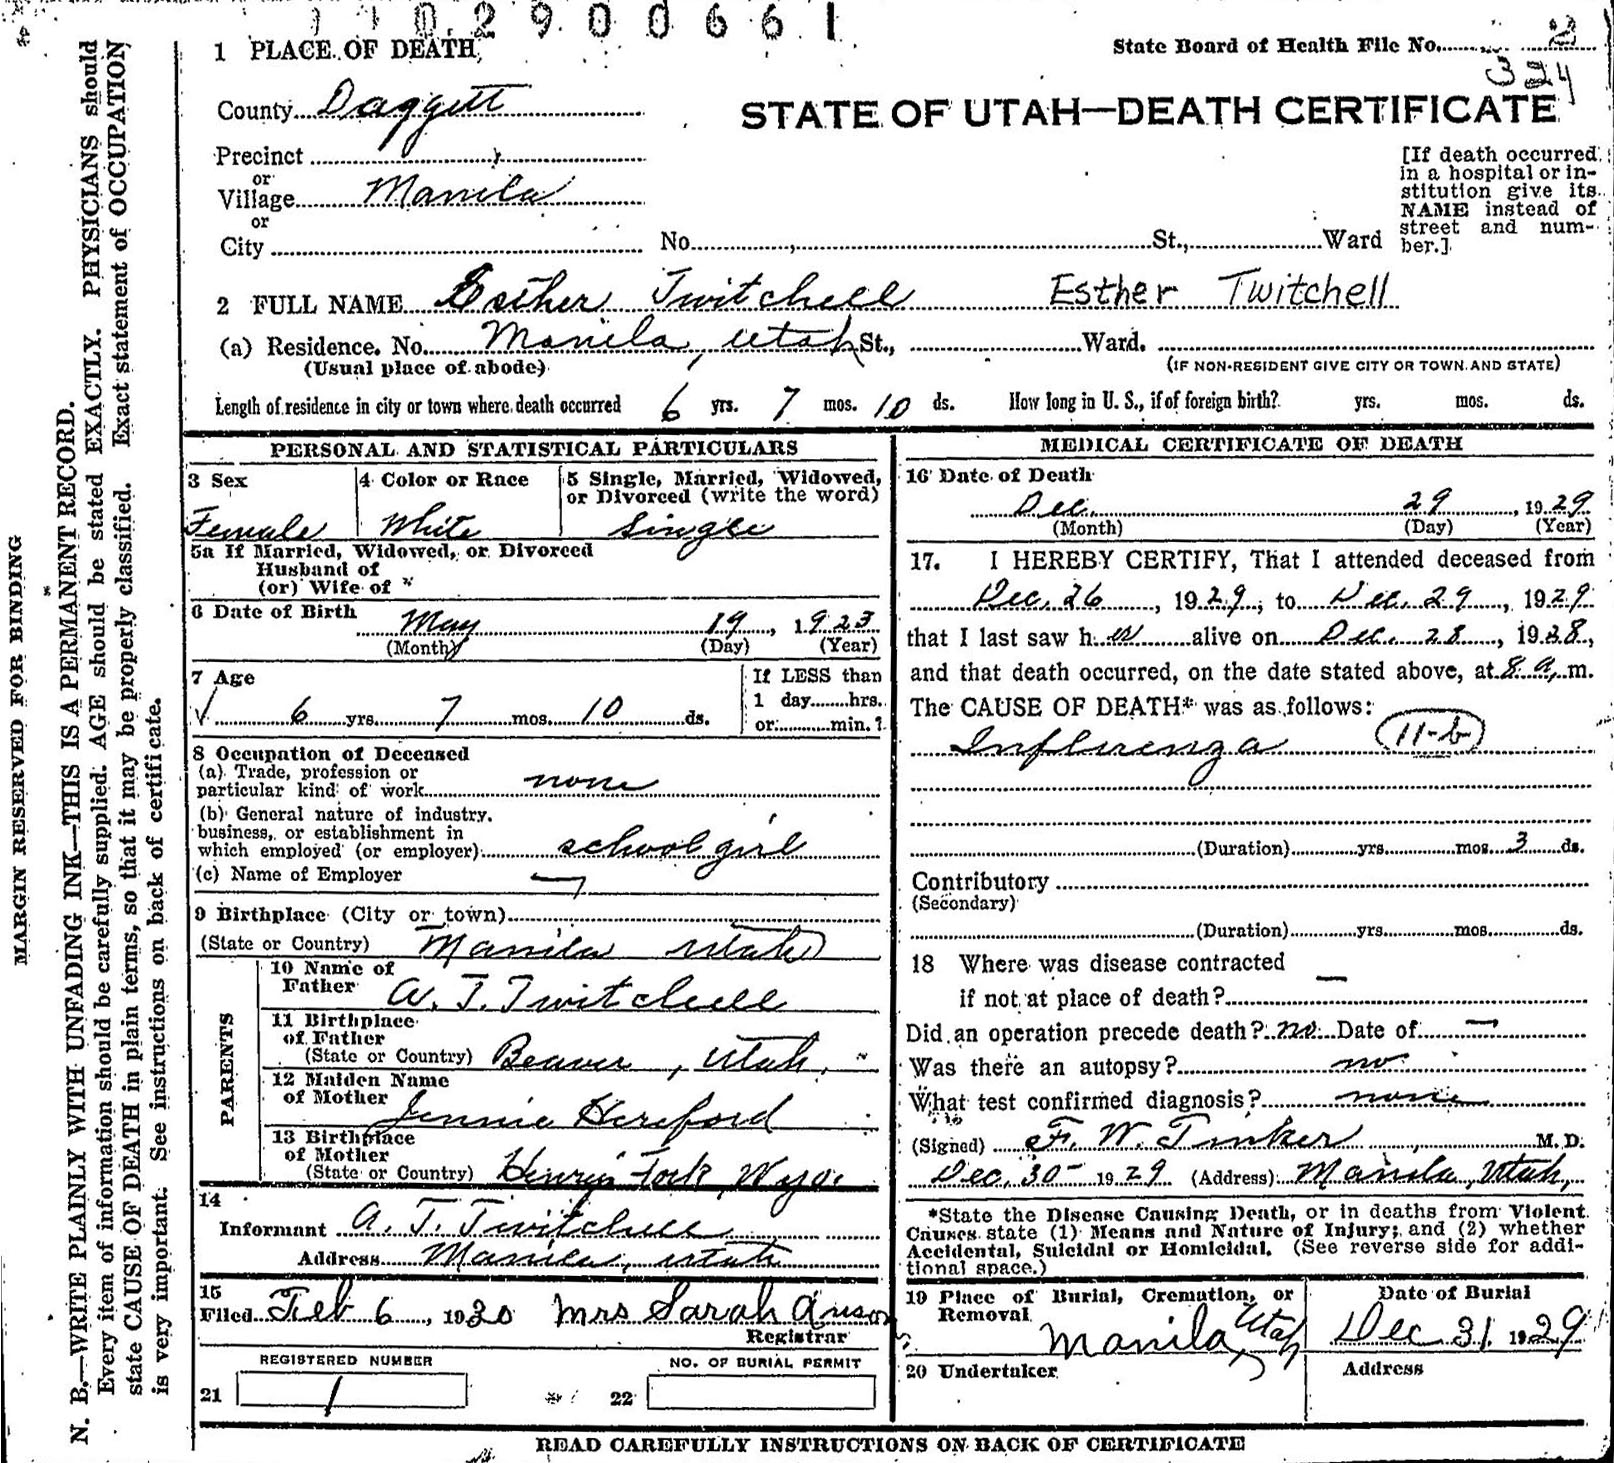 1 1 0 2 9 0 0 6 6 1
1 PLACE OF DEATH
State Board of Health File No. 2
324
County Daggett
STATE OF UTAH—DEATH CERTIFICATE
Precinct
or
Village Manila
or
City No. St., Ward
[If death occurred
in a hospital or in-
stitution give its
NAME instead of
street and num-
ber.]
2 FULL NAME Esther Twitchell Esther Twitchell
(a) Residence. No. Manila, Utah St., Ward.
(Usual place of abode) (IF NON-RESIDENT GIVE CITY OR TOWN AND STATE)
Length of residence in city or town where death occurred 6 yrs. 7 mos. 10 ds. How long in U. S., if of foreign birth? yrs. mos. ds.
PERSONAL AND STATISTICAL PARTICULARS
3 Sex
Female
4 Color or Race
White
5 Single, Married, Widowed,
or Divorced (write the word)
Single
5a If Married, Widowed, or Divorced
Husband of
(or) Wife of
6 Date of Birth
May 19, 1923
(Month) (Day) (Year)
7 Age
6 yrs. 7 mos. 10 ds.
If LESS than
1 day hrs.
or min.?
8 Occupation of Deceased
(a) Trade, profession or
particular kind of work none
(b) General nature of industry,
business, or establishment in
which employed (or employer) school girl
(c) Name of Employer
9 Birthplace (City or town)
(State or Country) Manila Utah
PARENTS
10 Name of
Father A. T. Twitchell
11 Birthplace
of Father
(State or Country) Beaver, Utah,
12 Maiden Name
of Mother Jennie Hereford
13 Birthplace
of Mother
(State or Country) Henrys Fork, Wyo.
14
Informant A. T. Twitchell
Address Manila, Utah
15
Filed Feb 6, 1930 Mrs Sarah Anson
Registrar
REGISTERED NUMBER
21 1
NO. OF BURIAL PERMIT
22
MEDICAL CERTIFICATE OF DEATH
16 Date of Death
Dec. 29, 1929
(Month) (Day) (Year)
17. I HEREBY CERTIFY, That I attended deceased from
Dec. 26, 1929, to Dec. 29, 1929
that I last saw her alive on Dec. 28, 1928,
and that death occurred, on the date stated above, at 8 a, m.
The CAUSE OF DEATH* was as follows:
Influenza 11-b
(Duration) yrs. mos. 3 ds.
Contributory
(Secondary)
(Duration) yrs. mos. ds.
18 Where was disease contracted
if not at place of death? —
Did an operation precede death? no Date of —
Was there an autopsy? no
What test confirmed diagnosis? none
(Signed) F. W. Tinker, M. D.
Dec. 30- 1929 (Address) Manila, Utah,
*State the Disease Causing Death, or in deaths from Violent
Causes state (1) Means and Nature of Injury; and (2) whether
Accidental, Suicidal or Homicidal. (See reverse side for addi-
tional space.)
19 Place of Burial, Cremation, or
Removal
Manila, Utah
Date of Burial
Dec 31 1929
20 Undertaker
Address
READ CAREFULLY INSTRUCTIONS ON BACK OF CERTIFICATE
MARGIN RESERVED FOR BINDING
N. B.—WRITE PLAINLY WITH UNFADING INK—THIS IS A PERMANENT RECORD.
Every item of information should be carefully supplied. AGE should be stated EXACTLY. PHYSICIANS should
state CAUSE OF DEATH in plain terms, so that it may be properly classified. Exact statement of OCCUPATION
is very important. See instructions on back of certificate.